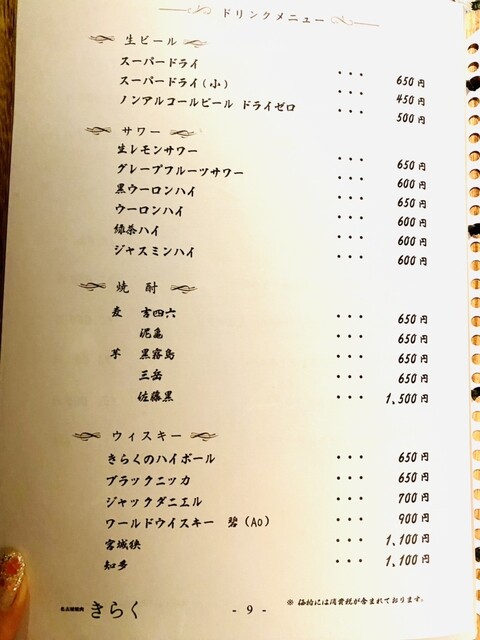 ドリンクメニュー
生ビール
スーパードライ ・・・ 650円
スーパードライ(小) ・・・ 450円
ノンアルコールビール ドライゼロ ・・・ 500円
サワー
生レモンサワー ・・・ 650円
グレープフルーツサワー ・・・ 600円
黒ウーロンハイ ・・・ 650円
ウーロンハイ ・・・ 600円
緑茶ハイ ・・・ 600円
ジャスミンハイ ・・・ 600円
焼酎
麦 吉四六 ・・・ 650円
泥亀 ・・・ 650円
芋 黒霧島 ・・・ 650円
三岳 ・・・ 650円
佐藤黒 ・・・ 1,500円
ウィスキー
きらくのハイボール ・・・ 650円
ブラックニッカ ・・・ 650円
ジャックダニエル ・・・ 700円
ワールドウイスキー 碧(AO) ・・・ 900円
宮城狭 ・・・ 1,100円
知多 ・・・ 1,100円
※ 価格には消費税が含まれております。
名古屋焼肉 きらく - 9 -